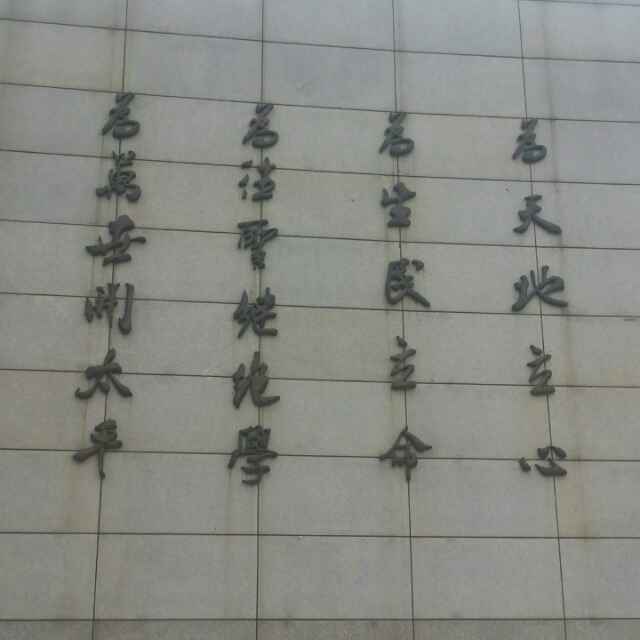 為天地立心
為生民立命
為往聖繼絕學
為萬世開太平